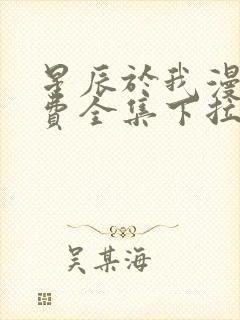 星辰於我漫
费全集下拉
吴某海